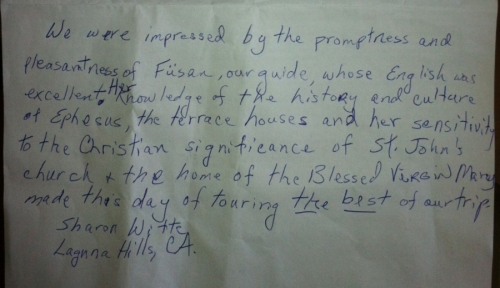 We were impressed by the promptness and
pleasantness of Füsan, our guide, whose English was
excellent. Her knowledge of the history and culture
of Ephesus, the terrace houses and her sensitivity
to the Christian significance of St. John's
church + the home of the Blessed Virgin Mary
made this day of touring the best of our trip.
Sharon Witte
Laguna Hills, CA.